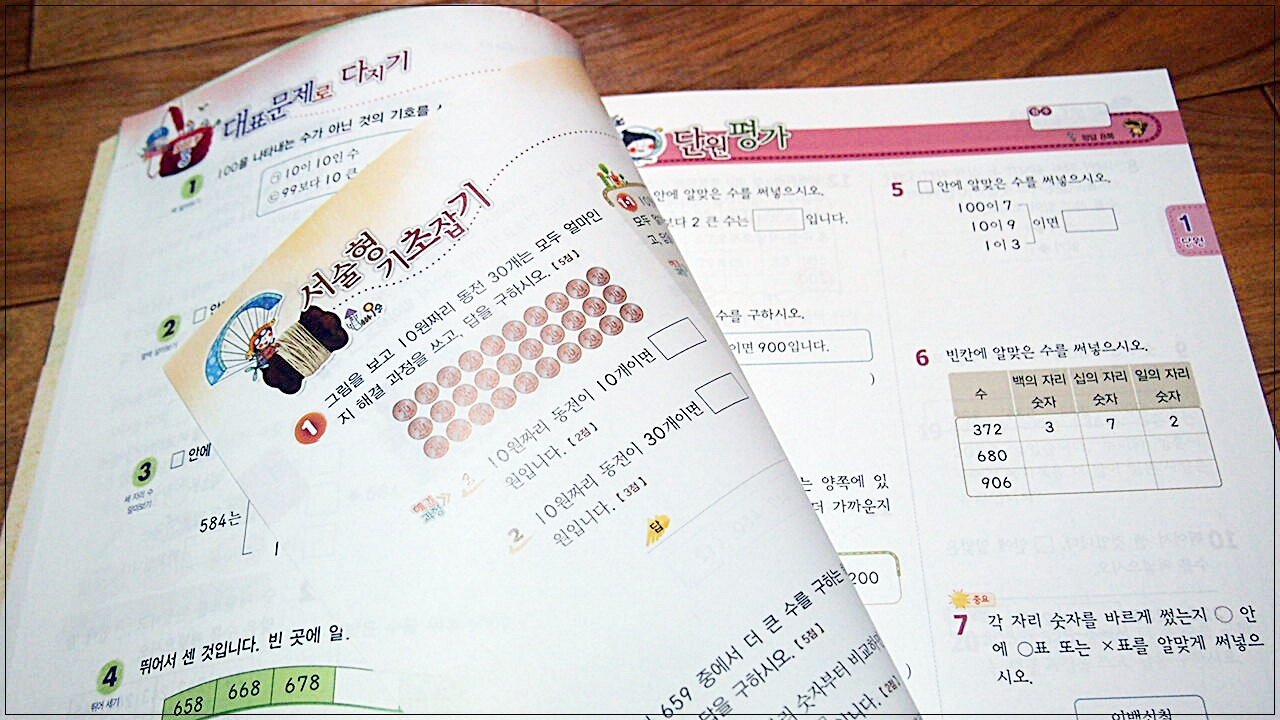 대표문제로 다지기
1
100을 나타내는 수가 아닌 것의 기호를
㉠ 10이 10인 수
㉡ 99보다 10 큰
2
3
□ 안에
세 자리 수
알아보기
584는
4
뛰어서 센 것입니다. 빈 곳에 알
뛰어 세기
658 668 678
서술형 기초잡기
1
그림을 보고 10원짜리 동전 30개는 모두 얼마인
지 해결 과정을 쓰고, 답을 구하시오. [5점]
해결
과정
10원짜리 동전이 10개이면 □
원입니다. [2점]
2
10원짜리 동전이 30개이면 □
원입니다. [3점]
답
659 중에서 더 큰 수를 구하는
답을 구하시오. [5점]
숫자부터 비교하면
단원평가
점수
정답 8쪽
안에 알맞은 수를 써넣으시오.
보다 2 큰 수는 □ 입니다.
수를 구하시오.
이면 900입니다.
는 양쪽에 있
더 가까운지
200
1
단원
5
□ 안에 알맞은 수를 써넣으시오.
100이 7
10이 9 이면 □
1이 3
6
빈칸에 알맞은 수를 써넣으시오.
수 백의 자리 숫자 십의 자리 숫자 일의 자리 숫자
372 3 7 2
680
906
중요
7
각 자리 숫자를 바르게 썼는지 ○ 안
에 ○표 또는 ×표를 알맞게 써넣으
시오.